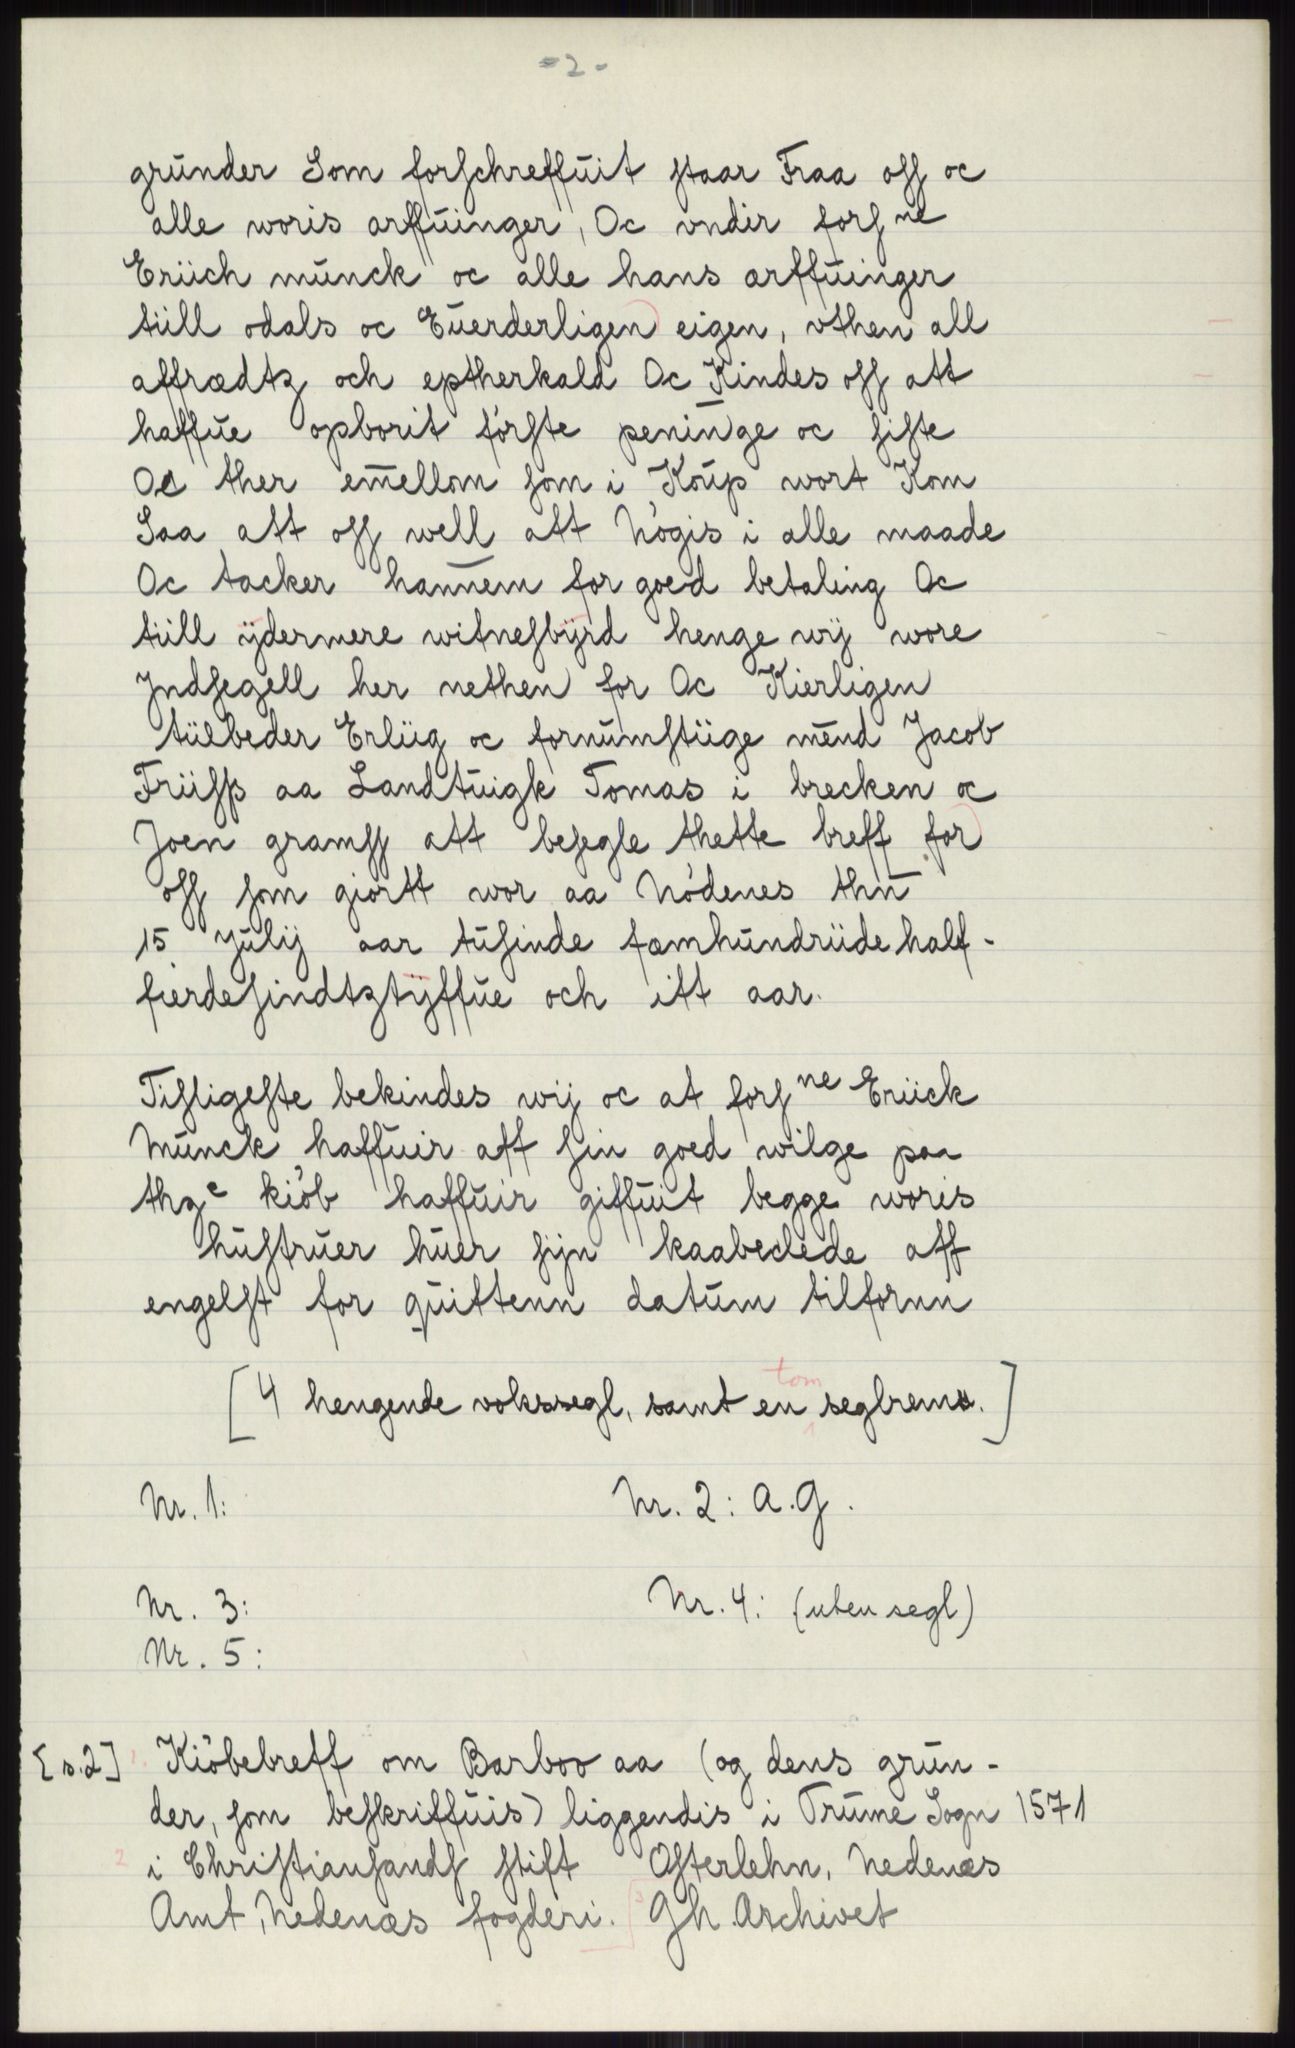 - 2 -
grunder Som forschreffuit staar Fraa oss oc
alle woris arffuinger, Oc vndir fors ne
Eriich munck oc alle hans arffuinger
tiill odals oc Euerderligen eigen, vthen all
affrædtz och eptherkald Oc Kindes oss att
haffue opborit første peninge oc siste
Oc ther emellom som i Koup wort Kom
Saa att oss well att Nøgis i alle maade
Oc tacker hannem for goed betaling Oc
tiill ÿdermere witnesbÿrd henge wij wore
Jndsegell her nethen for Oc Kierligen
tiilbeder Erliig oc fornumstiige mend Jacob
Friiss aa Landtuigk Tomas i brecken oc
Joen gramss att besegle thette breff for
oss som giortt wor aa Nødenes thn
15 Julij aar tusinde fæmhundriide half-
fierdesindtztÿffue och itt aar.
Tisligeste bekindes wij oc at fors ne Eriick
Munck haffuir aff sin goed wilge paa
thz e kiøb haffuir giffuit begge woris
hustruer huer sijn kaabeclede aff
engelst for quittenn datum tilfornn
[4 hengende vokssegl, samt en tom seglrem.]
Nr. 1: Nr. 2: A.G.
Nr. 3: Nr. 4: (uten segl)
Nr. 5:
[s.2] 1. Kiøbebreff om Barboo aa (og dens grun-
der, som beskriffuis) liggendis i Trume Sogn 1571
2 i Christiansands stift Osterlehn, Nedenæs
Amt, Nedenæs fogderi. 3 Gh. Archivet